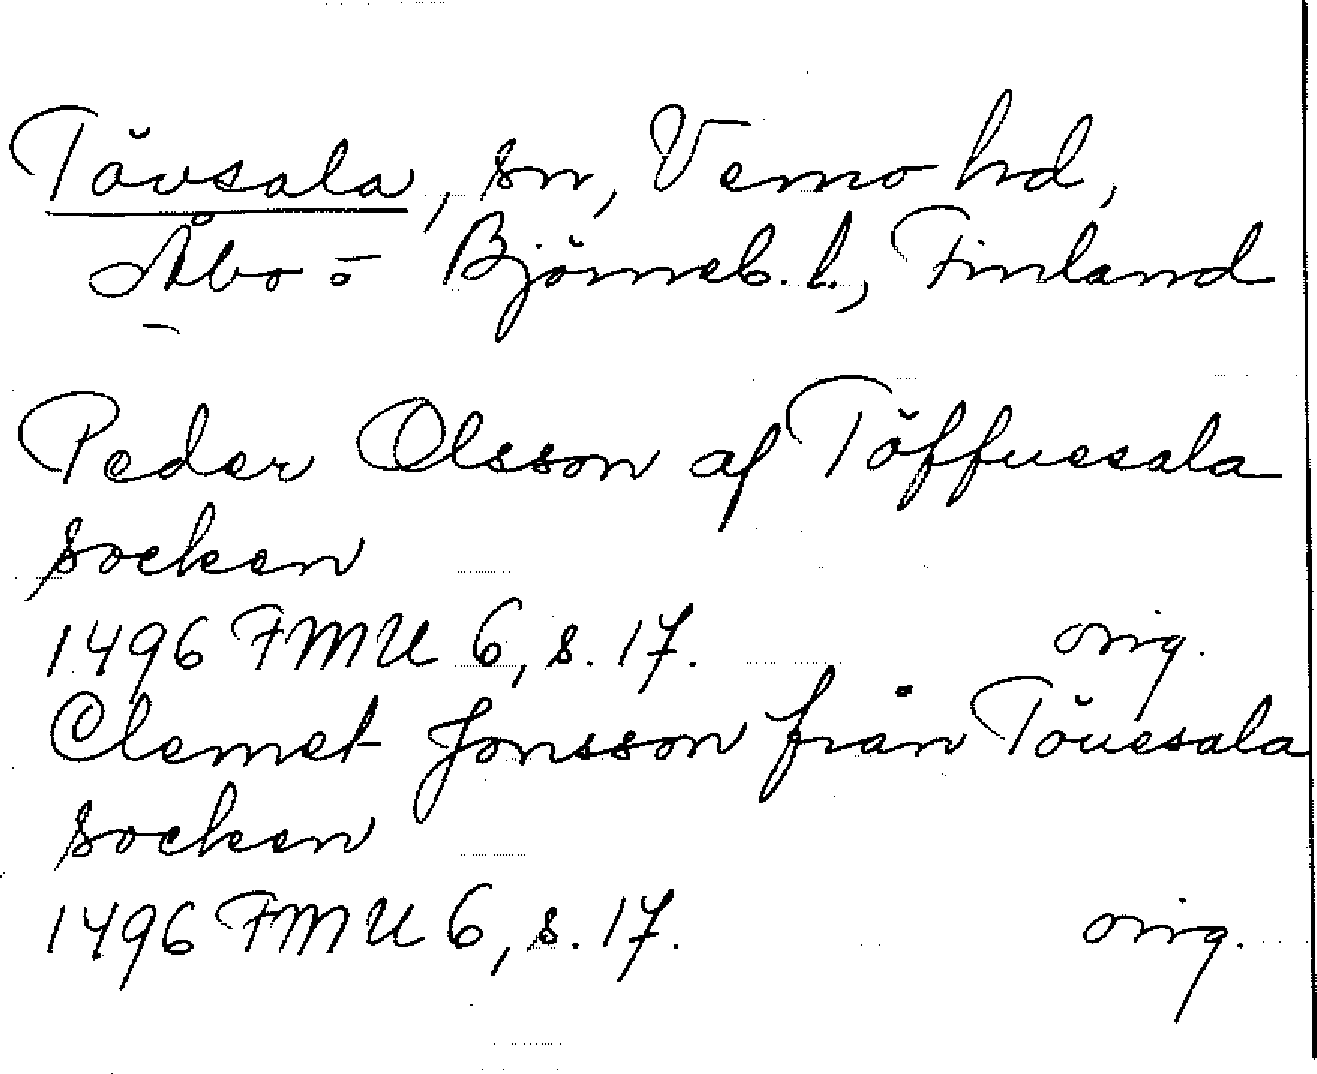 Tövsala, sn, Vemo hd,
Åbo o Björneb. l., Finland
Peder Olsson af Töffuesala
socken
1496 FMU 6, s. 17. orig.
Clemet Jonsson från Töuesala
socken
1496 FMU 6, s. 17. orig.